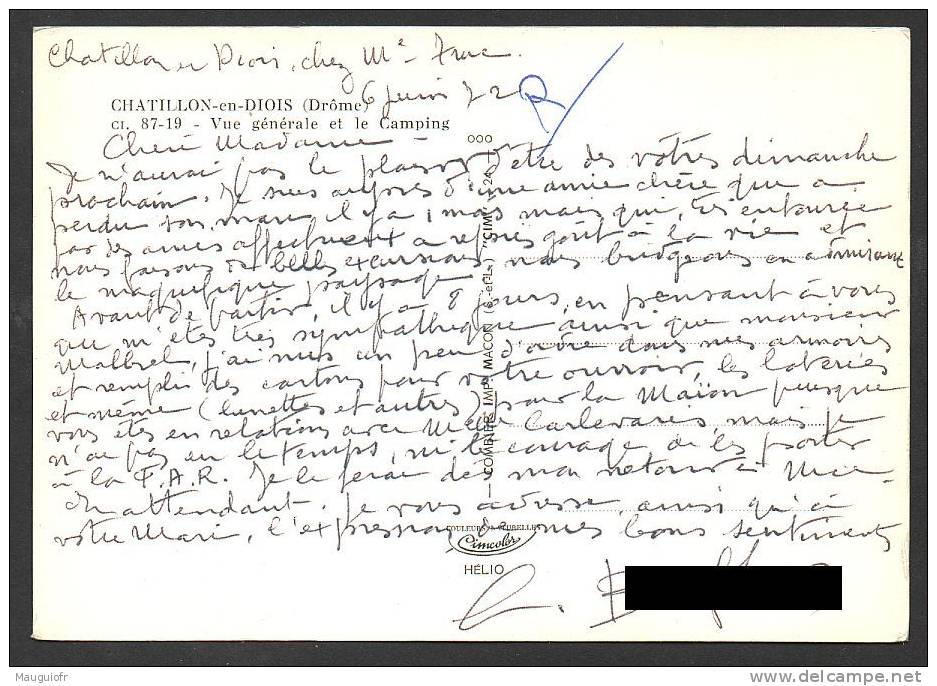 Chatillon en Diois, chez Me
6 juin 72
CHATILLON-en-DIOIS (Drôme)
CI. 87-19 - Vue générale et le Camping
Chère Madame
000
Je n'aurai pas le plaisir d'être des vôtres dimanche
prochain. Je suis auprès d'une amie chère que a
perdu son mari il y a 1 mois mais qui, très entourée
par des amies affectueux a repris goût à la vie et
nous faisons de belles excursions, nous bridgeons en admirant
le magnifique paysage
Avant de partir, il y a 8 jours, en pensant à vous
que m'êtes très sympathique ainsi que monsieur
Malbrel, j'ai mis un peu d'ordre dans mes armoires
et rempli des cartons pour votre ouvroir, les loteries
et même (lunettes et autres) pour la Maïon puisque
vous êtes en relations avec Melle Carlevaris, mais je
n'ai pas eu le temps, ni le courage de les porter
à la F.A.R. Je le ferai dès mon retour à Nice
En attendant, je vous adresse, ainsi qu'à
votre Mari, l'expression de mes bons sentiments
COMBIER IMP. MACON (S.-et-L.) "CIM"
COULEURS NATURELLES
Cimcolor
HÉLIO
Mauguiofr
delcampe.net